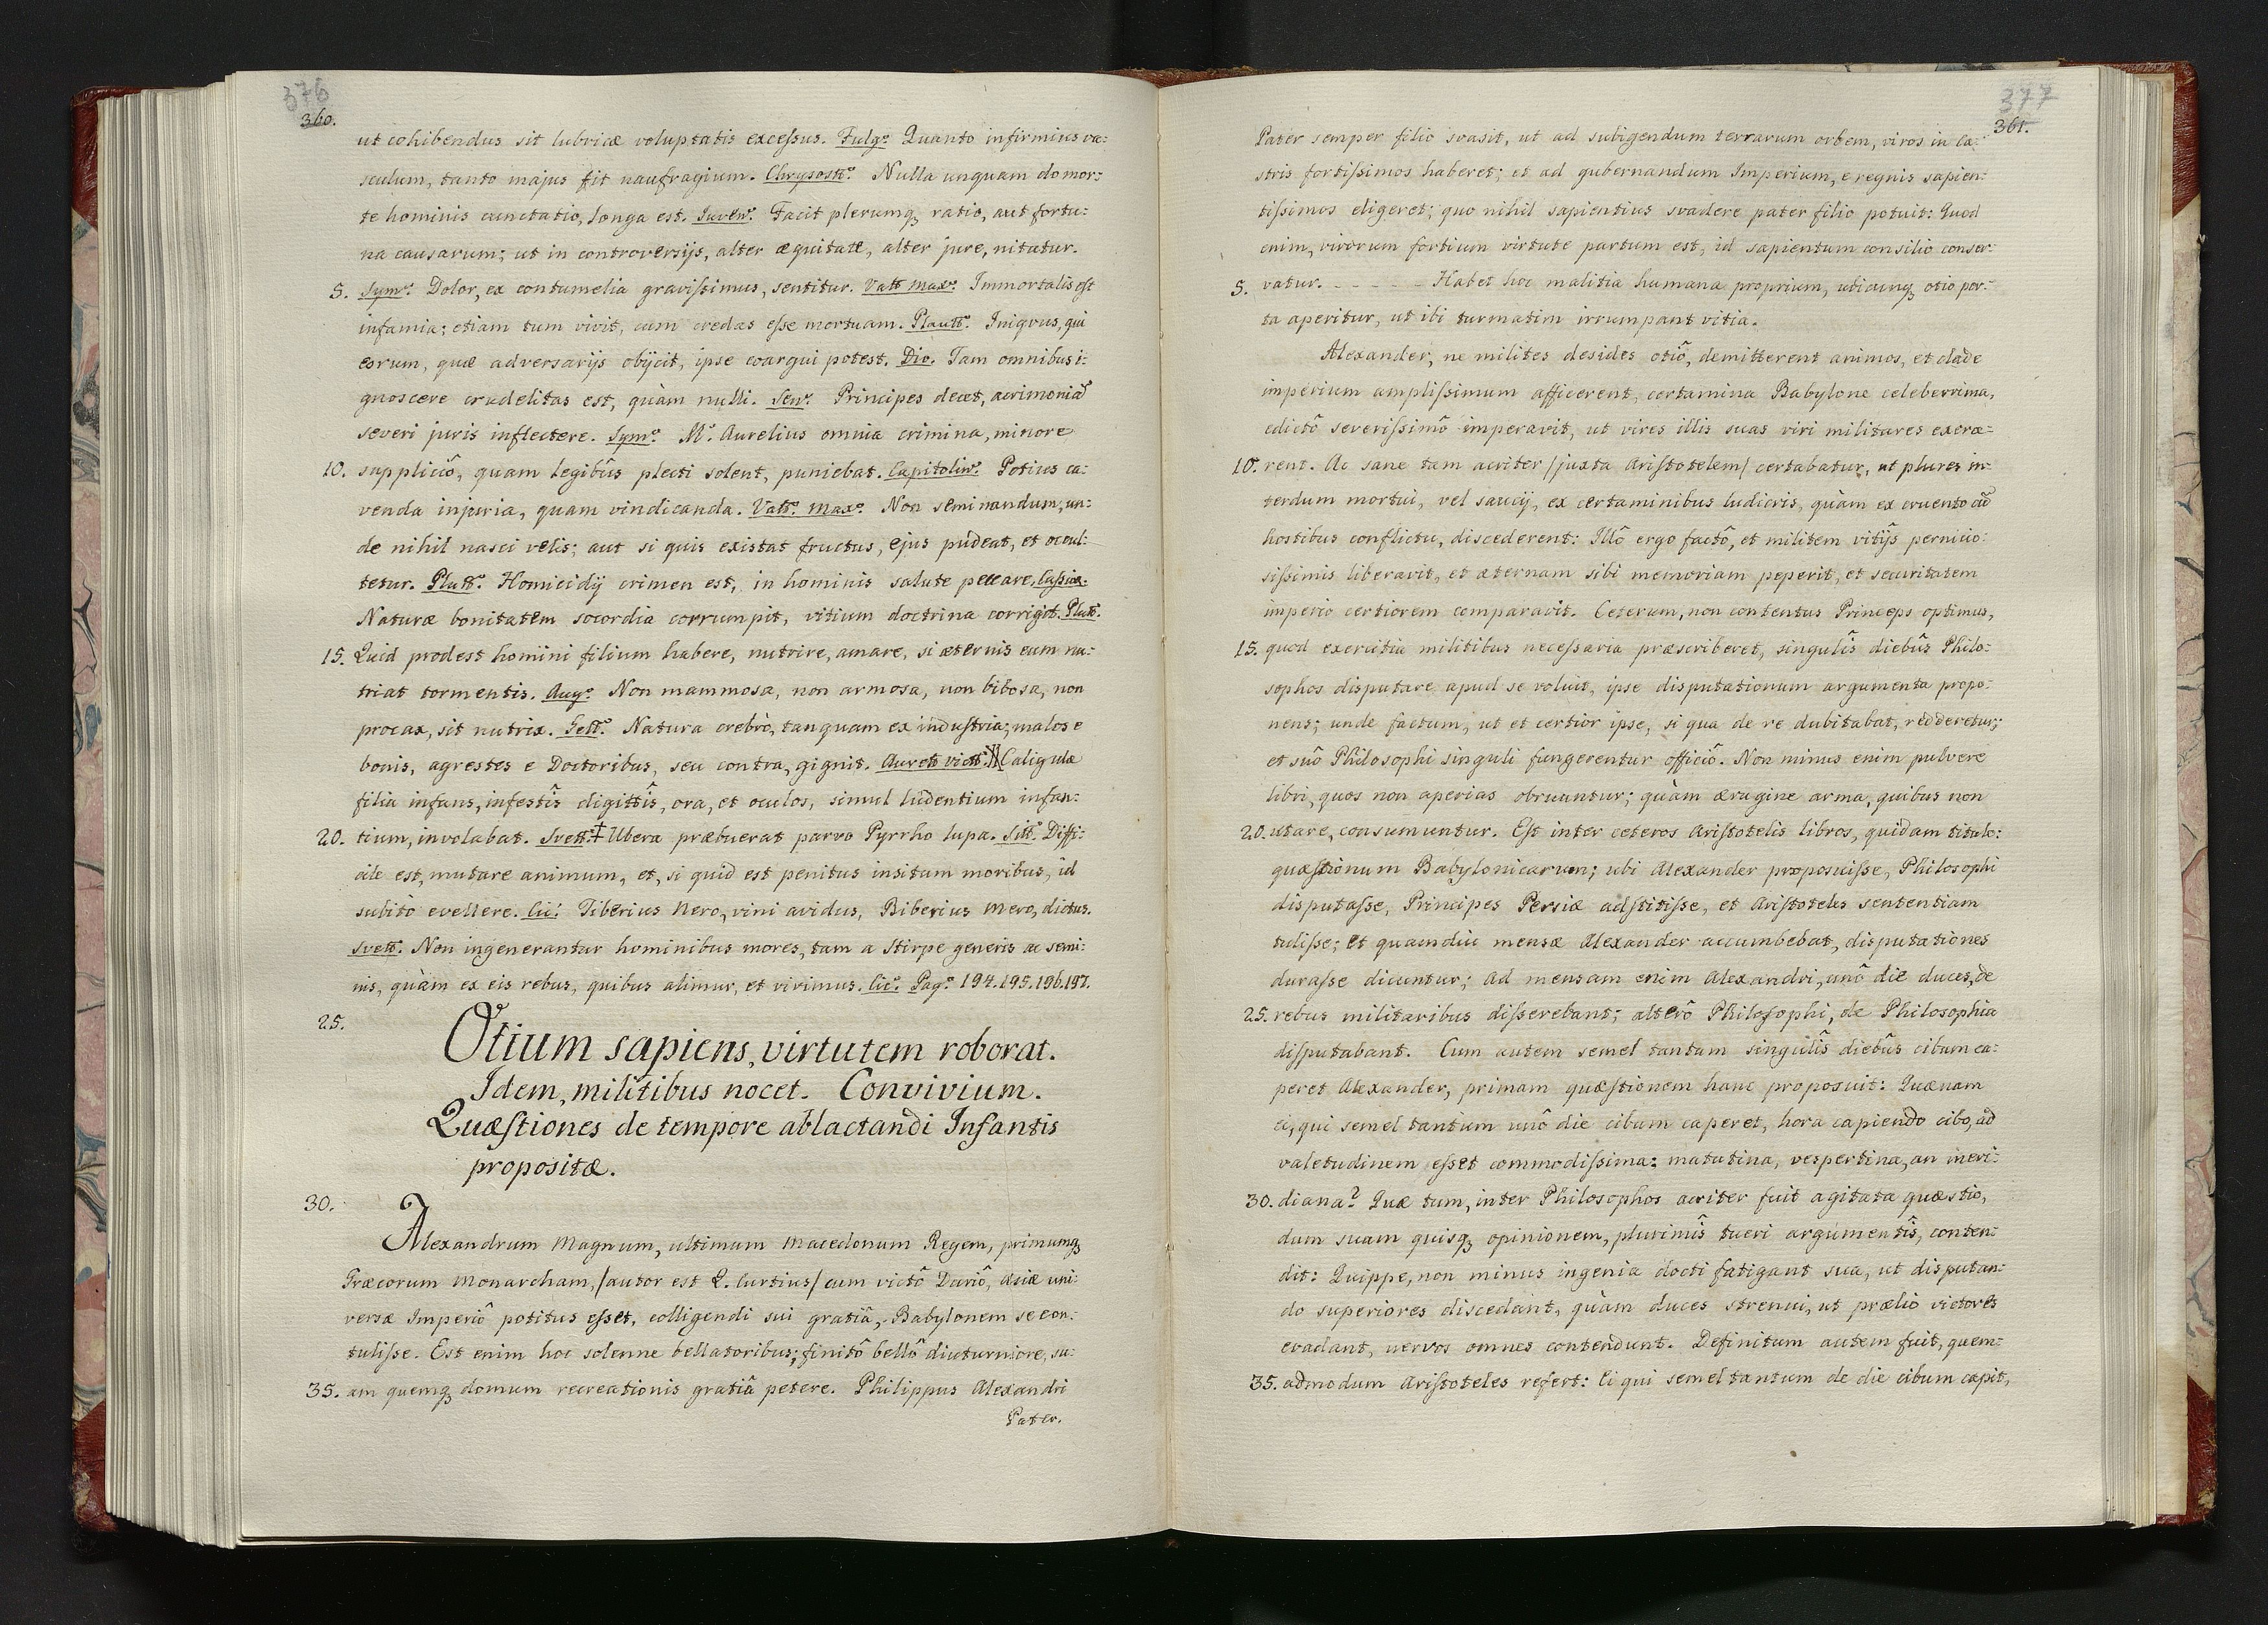 376
360.
ut cohibendus sit lubricæ voluptatis excessus. Fulg. Quanto infirmius va:
sculum, tanto majus fit naufragium. Chrysost. Nulla unquam de mor:
te hominis cunctatio, longa est. Iuven. Facit plerumq; ratio, aut fortu:
na causarum; ut in controversijs, alter æquitate, alter jure, nitatur.
5. Sym. Dolor, ex contumelia gravissimus, sentitur. Vall Max. Immortalis est
infamia; etiam tum vivit, cum credas esse mortuam. Plautt. Iniqvus, qui
eorum, quæ adversarijs obijcit, ipse coargui potest. Dio. Tam omnibus i:
gnoscere crudelitas est, quàm nulli. Sen. Principes decet, acrimoniâ
severi juris inflectere. Sym. M. Aurelius omnia crimina, minore
10. suppliciô, quam legibûs plecti solent, puniebat. Capitolin. Potius ca:
venda injuria, quam vindicanda. Vall. Max. Non seminandum, un:
de nihil nasci velis; aut si quis existat fructus, ejus pudeat, et occul:
tetur. Plutt. Homicidij crimen est, in hominis salute peccare. Cassiod.
Naturæ bonitatem socordia corrumpit, vitium doctrina corrigit. Plutt.
15. Quid prodest homini filium habere, nutrire, amare, si æternis eum nu:
triat tormentis. Aug. Non mammosa, non armosa, non bibosa, non
procax, sit nutrix. Gell. Natura crebrò, tanquam ex industria, malos e
bonis, agrestes e Doctoribus, seu contra, gignit. Aurell vict. Caligulæ
filia infans, infestîs digittîs, ora, et oculos, simul ludentium infan:
20. tium, involabat. Svett. ‡ Ubera præbuerat parvo Pyrrho lupa. Sill. Diffi:
cile est, mutare animum, et, si quid est penitus insitum moribus, id
subitò evellere. Cic. Tiberius Nero, vini avidus, Biberius Mero, dictus.
Svett. Non ingenerantur hominibus mores, tam a Stirpe generis ac semi:
nis, quàm ex eis rebus, quibus alimur, et vivimus. Cic. Pag. 194.195.196.197.
25.
Otium sapiens, virtutem roborat.
Idem, militibus nocet. Convivium.
Quæstiones de tempore ablactandi Infantis
propositæ.
30.
Alexandrum Magnum, ultimum Macedonum Regem, primumq;
Græcorum Monarcham, /autor est Q. Curtius/ cum victô Dariô, Asiæ uni:
versæ Imperiô potitus esset, colligendi sui gratiâ, Babylonem se con:
tulisse. Est enim hoc solenne bellatoribus; finitô bellô diuturniore, su:
35. am quemq; domum recreationis gratiâ petere. Philippus Alexandri
Pater.
377
361.
Pater semper filio svasit, ut ad subigendum terrarum orbem, viros in Ca:
stris fortissimos haberet; et ad gubernandum Imperium, e regnis sapien:
tissimos eligeret; quo nihil sapientius svadere pater filio potuit: Quod
enim, virorum fortium virtute partum est, id sapientum consilio conser:
5. vatur. - - - - - Habet hoc malitia humana proprium, ubicunq; otio por:
ta aperitur, ut ibi turmatim irrumpant vitia.
Alexander, ne milites desides otiô, demitterent animos, et clade
imperium amplissimum afficerent, certamina Babylone celeberrima,
edictô severissimô imperavit, ut vires illis suas viri militares exerce:
10. rent. Ac sane tam acriter /juxta Aristotelem/ certabatur, ut plures in:
terdum mortui, vel saucij, ex certaminibus ludicris, quàm ex cruento cũ
hostibus conflictu, discederent: Illô ergo factô, et militem vitijs pernicio:
sissimis liberavit, et æternam sibi memoriam peperit, et securitatem
imperio certiorem comparavit. Ceterum, non contentus Princeps optimus,
15. quod exercitia militibus necessaria præscriberet, singulîs diebûs Philo:
sophos disputare apud se voluit, ipse disputationum argumenta propo:
nens; unde factum, ut et certior ipse, si qua de re dubitabat, redderetur;
et suô Philosophi singuli fungerentur officiô. Non minus enim pulvere
libri, quos non aperias obruuntur; quàm ærugine arma, quibus non
20. utare, consumuntur. Est inter ceteros Aristotelis libros, quidam titulo:
quæstionum Babylonicarum; ubi Alexander proposuisse, Philosophi
disputasse, Principes Persiæ adstitisse, et Aristoteles sententiam
tulisse; et quamdiu mensæ Alexander accumbebat, disputationes
durasse dicuntur; Ad mensam enim Alexandri, unô die duces, de
25. rebus militaribus disserebant; alterô Philosophi, de Philosophia
disputabant. Cum autem semel tantum singulîs diebûs cibum ca:
peret Alexander, primam quæstionem hanc proposuit: Quænam
ei, qui semel tantum unô die cibum caperet, hora capiendo cibo, ad
valetudinem esset commodissima: matutina, vespertina, an meri:
30. diana? Quæ tum, inter Philosophos acriter fuit agitata quæstio,
dum suam quisq; opinionem, plurimîs tueri argumentîs, conten:
dit: Quippe, non minus ingenia docti fatigant sua, ut disputan:
do superiores discedant, quàm duces strenui, ut prælio victores
evadant, nervos omnes contendunt. Definitum autem fuit, quem:
35. admodum Aristoteles refert: Ei qui semel tantum de die cibum capit,